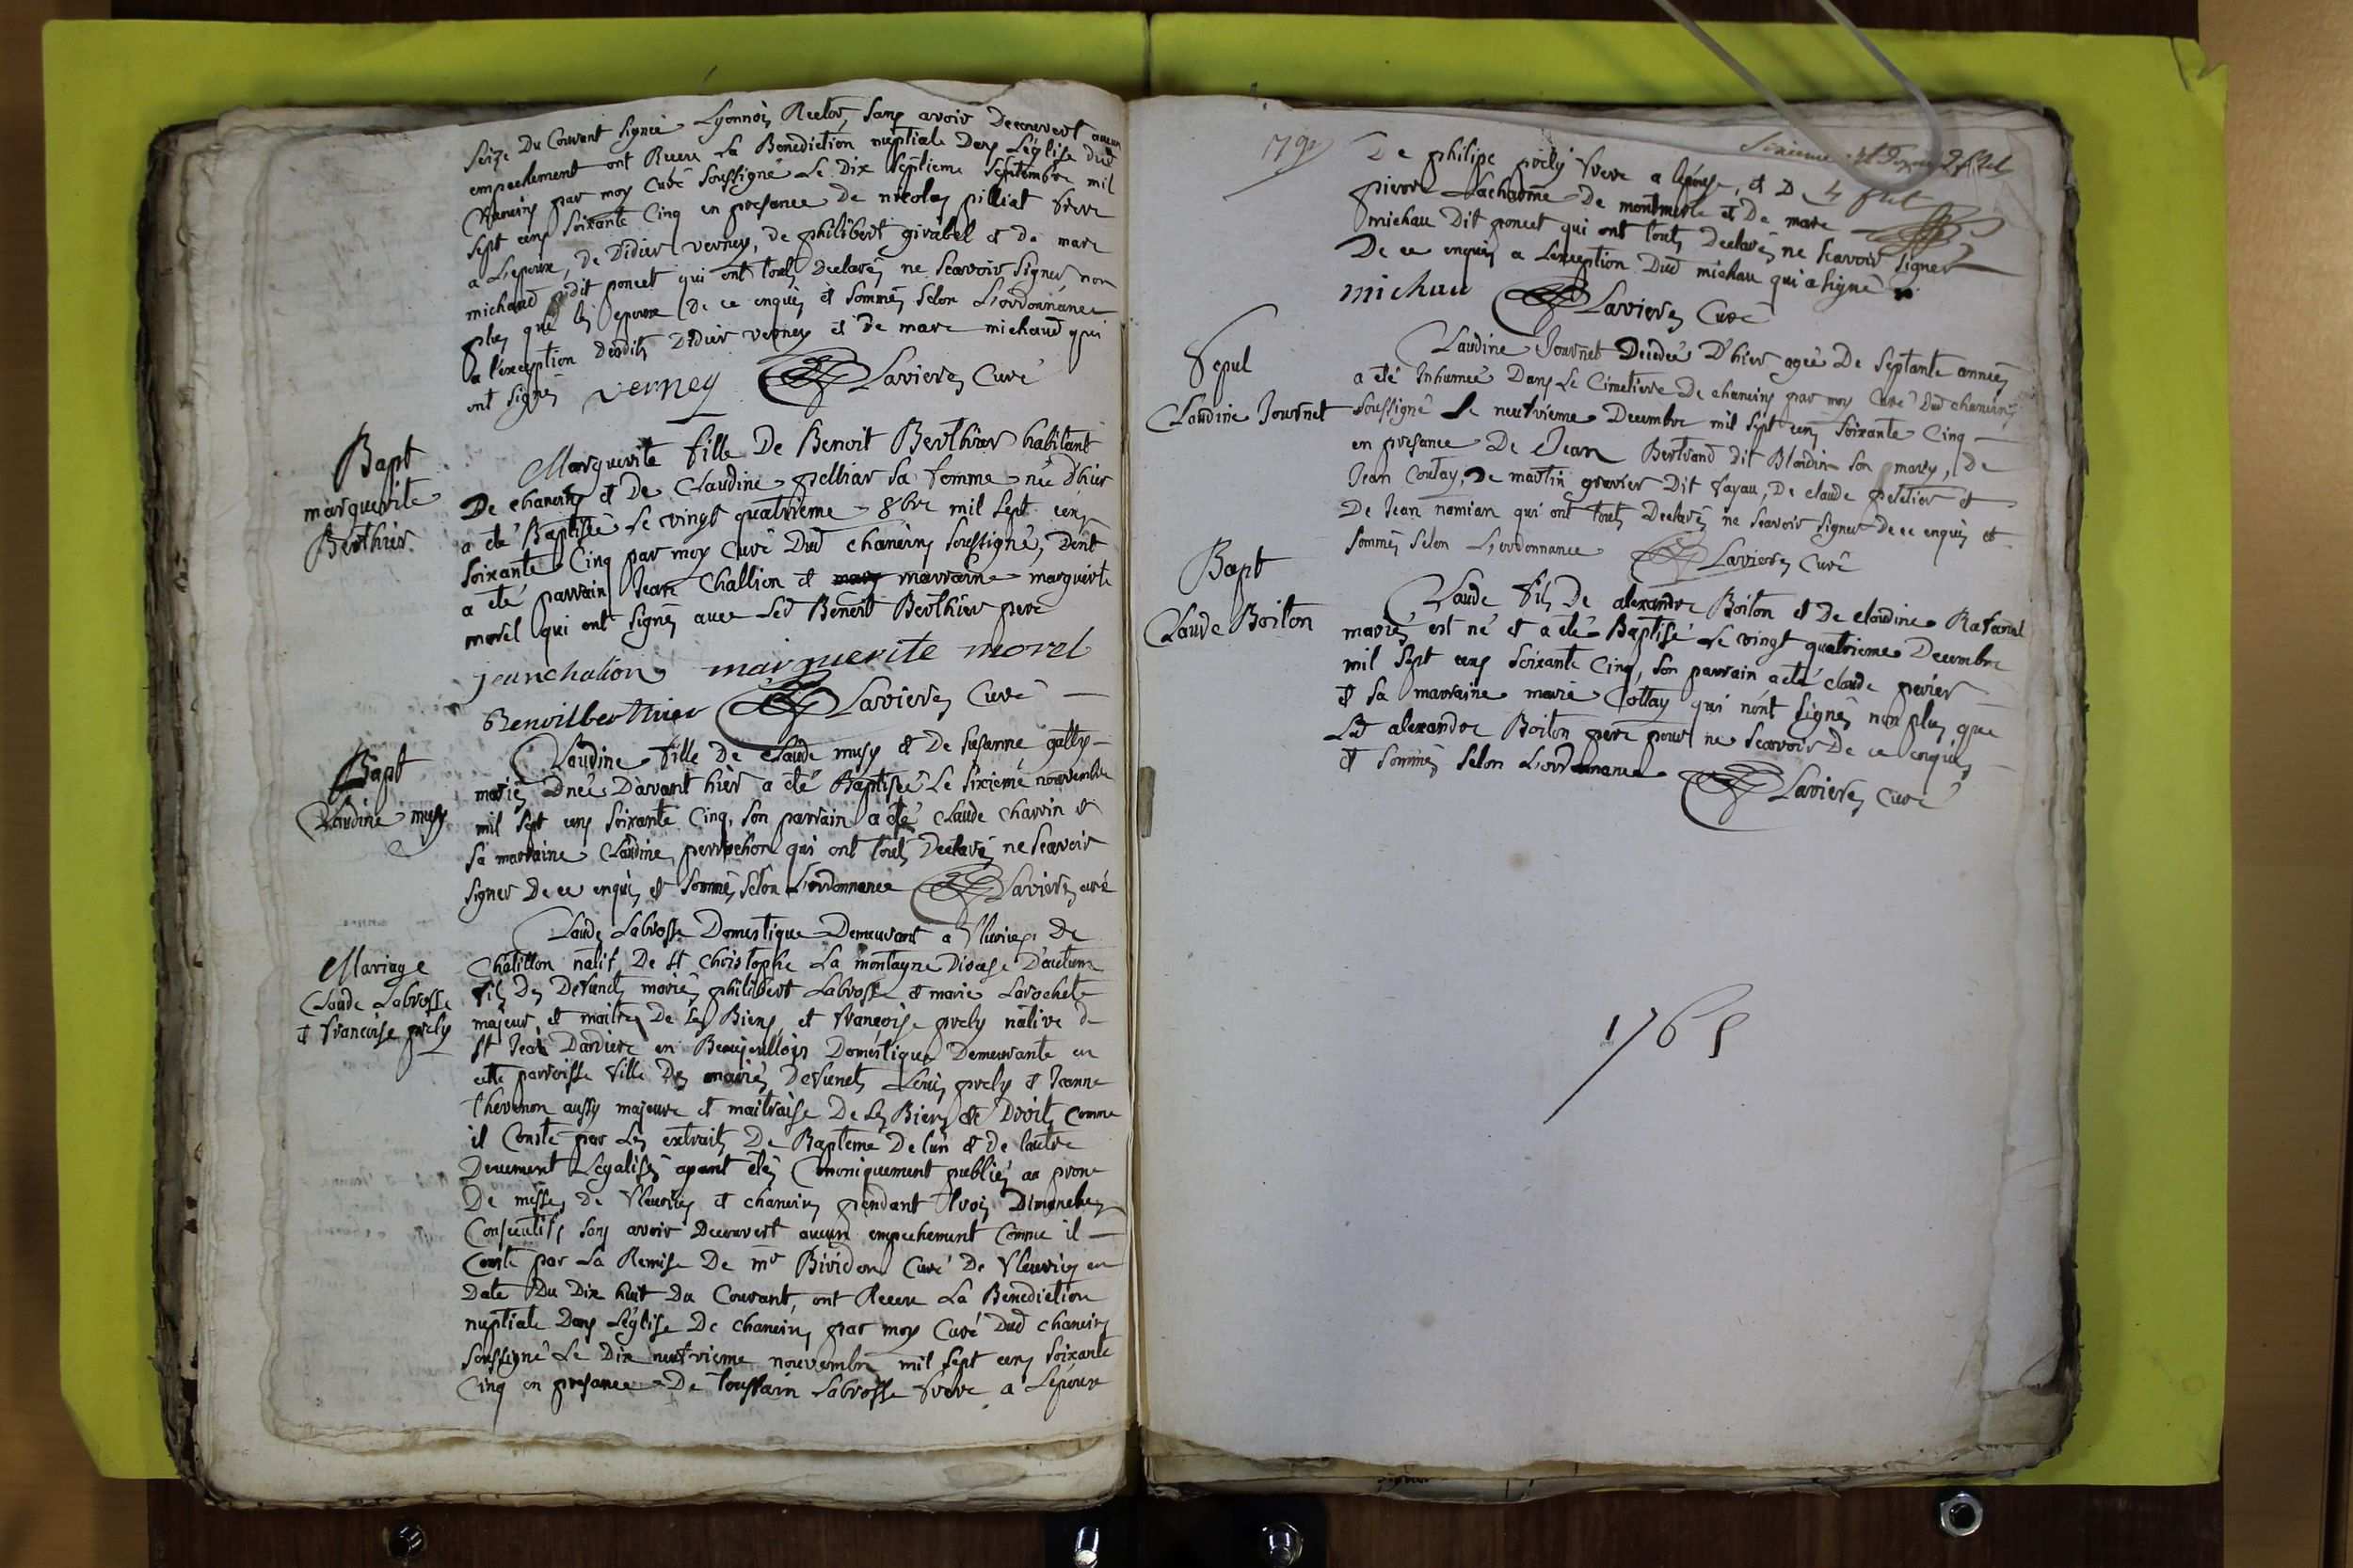 Seize Du Courant Signée Lyonnois Rector, Sans avoir Decouvert aucun
empechement ont Recu La Benediction nuptiale Dans L'église dud
Chaneins par moy Curé Soussigné Le Dix Septieme Septembre mil
Sept cens Soixante Cinq en presance De nicolas pilliat frere
a L'epouse, de Didier verney, de philibert girabel et de marc
michaud dit poncet qui ont touts Declarés ne Scavoir Signer non
plus que les epoux De ce enquis et Sommés Selon L'ordonnance
a l'exception desdits Didier verney et De marc michaud qui
ont Signés verney Lavieres Curé
Bapt
marguerite
Berthier
Marguerite fille De Benoit Berthier habitant
De chaneins et De Claudine pelliar Sa femme née D'hier
a été Baptisée Le vingt quatrieme 8bre mil Sept cens
Soixante Cinq par moy Curé Dud chaneins Soussigné, Dont
a été parrain Jean Challion et marraine marguerite
morel qui ont Signés avec Led Benoit Berthier pere
jeanchalion marguerite morel
Benoitberthier Lavieres Curé
Bapt
Claudine musy
Claudine fille De Claude musy et De Susanne gally
mariés née D'avant hier a été Baptisée Le Sixieme nouvembre
mil Sept cens Soixante Cinq, Son parrain a été Claude charvin et
Sa marraine Claudine perrochon qui ont touts Declarés ne Scavoir
Signer De ce enquis et Sommés Selon L'ordonnance Lavieres curé
Mariage
Claude Labrosse
et francoise prely
Claude Labrosse Domestique Demeurant a fleuries De
Chatillon natif De St Christophe La montagne Diocese D'autun
fils Des Defuncts mariés philibert Labrosse et marie Larochete
majeur, et maitre De Ses Biens, et françoise prely native de
St Jean Dardiere en Beaujeullois Domestique Demeurante en
cette parroisse fille Des mariés Defuncts Louis prely et Jeanne
thevenon aussy majeure et maitraise De Ses Biens et Droits Comme
il Conste par Les extraits De Bapteme De lun et De lautre
Deuement Legalisés ayant étés Canoniquement publiés au prone
De messes De fleuries et chaneins pendant trois Dimanches
Consecutifs Sans avoir Decouvert aucun empechement Comme il
Conste par La Remise De mr Bividon Curé De fleuries en
Date Du Dix huit Du Courant, ont Receu La Benediction
nuptiale Dans L'église De chaneins par moy Curé Dud chaneins
Soussigné Le Dix neufvieme nouvembre mil Sept cens Soixante
Cinq en presance De toussain Labrosse frere a L'epoux
De philipe prely frere a lepouse, et D
pierre Lachaume De montmerle et De marc
michau Dit poncet qui ont touts Declarés ne Scavoir Signer
De ce enquis a L'exception Dud michau qui a Signé
michau Lavieres Curé
Sepul
Claudine Journet
Claudine Journet Decedée D'hier agée De Septante années
a été Inhumée Dans Le Cimetierre De chaneins par moy Curé Dud chaneins
Soussigné Le neufvieme Decembre mil Sept cens Soixante Cinq
en presance De Jean Bertrand Dit Blondin Son mary, De
Jean Coutay, De martin gravier Dit fayau, De claude peletier et
De Jean namian qui ont touts Declarés ne Scavoir Signer De ce enquis et
Sommés Selon L'ordonnance Lavieres Curé
Bapt
Claude Boiton
Claude fils De alexandre Boiton et De claudine
mariés est né et a été Baptisé Le vingt quatrieme Decembre
mil Sept cens Soixante Cinq, Son parrain a été claude perier
et Sa marraine marie Collay qui nont Signés non plus que
Led alexandre Boiton pere pour ne Scavoir De ce enquis
et Sommés Selon L'ordonnance Lavieres Curé
1765